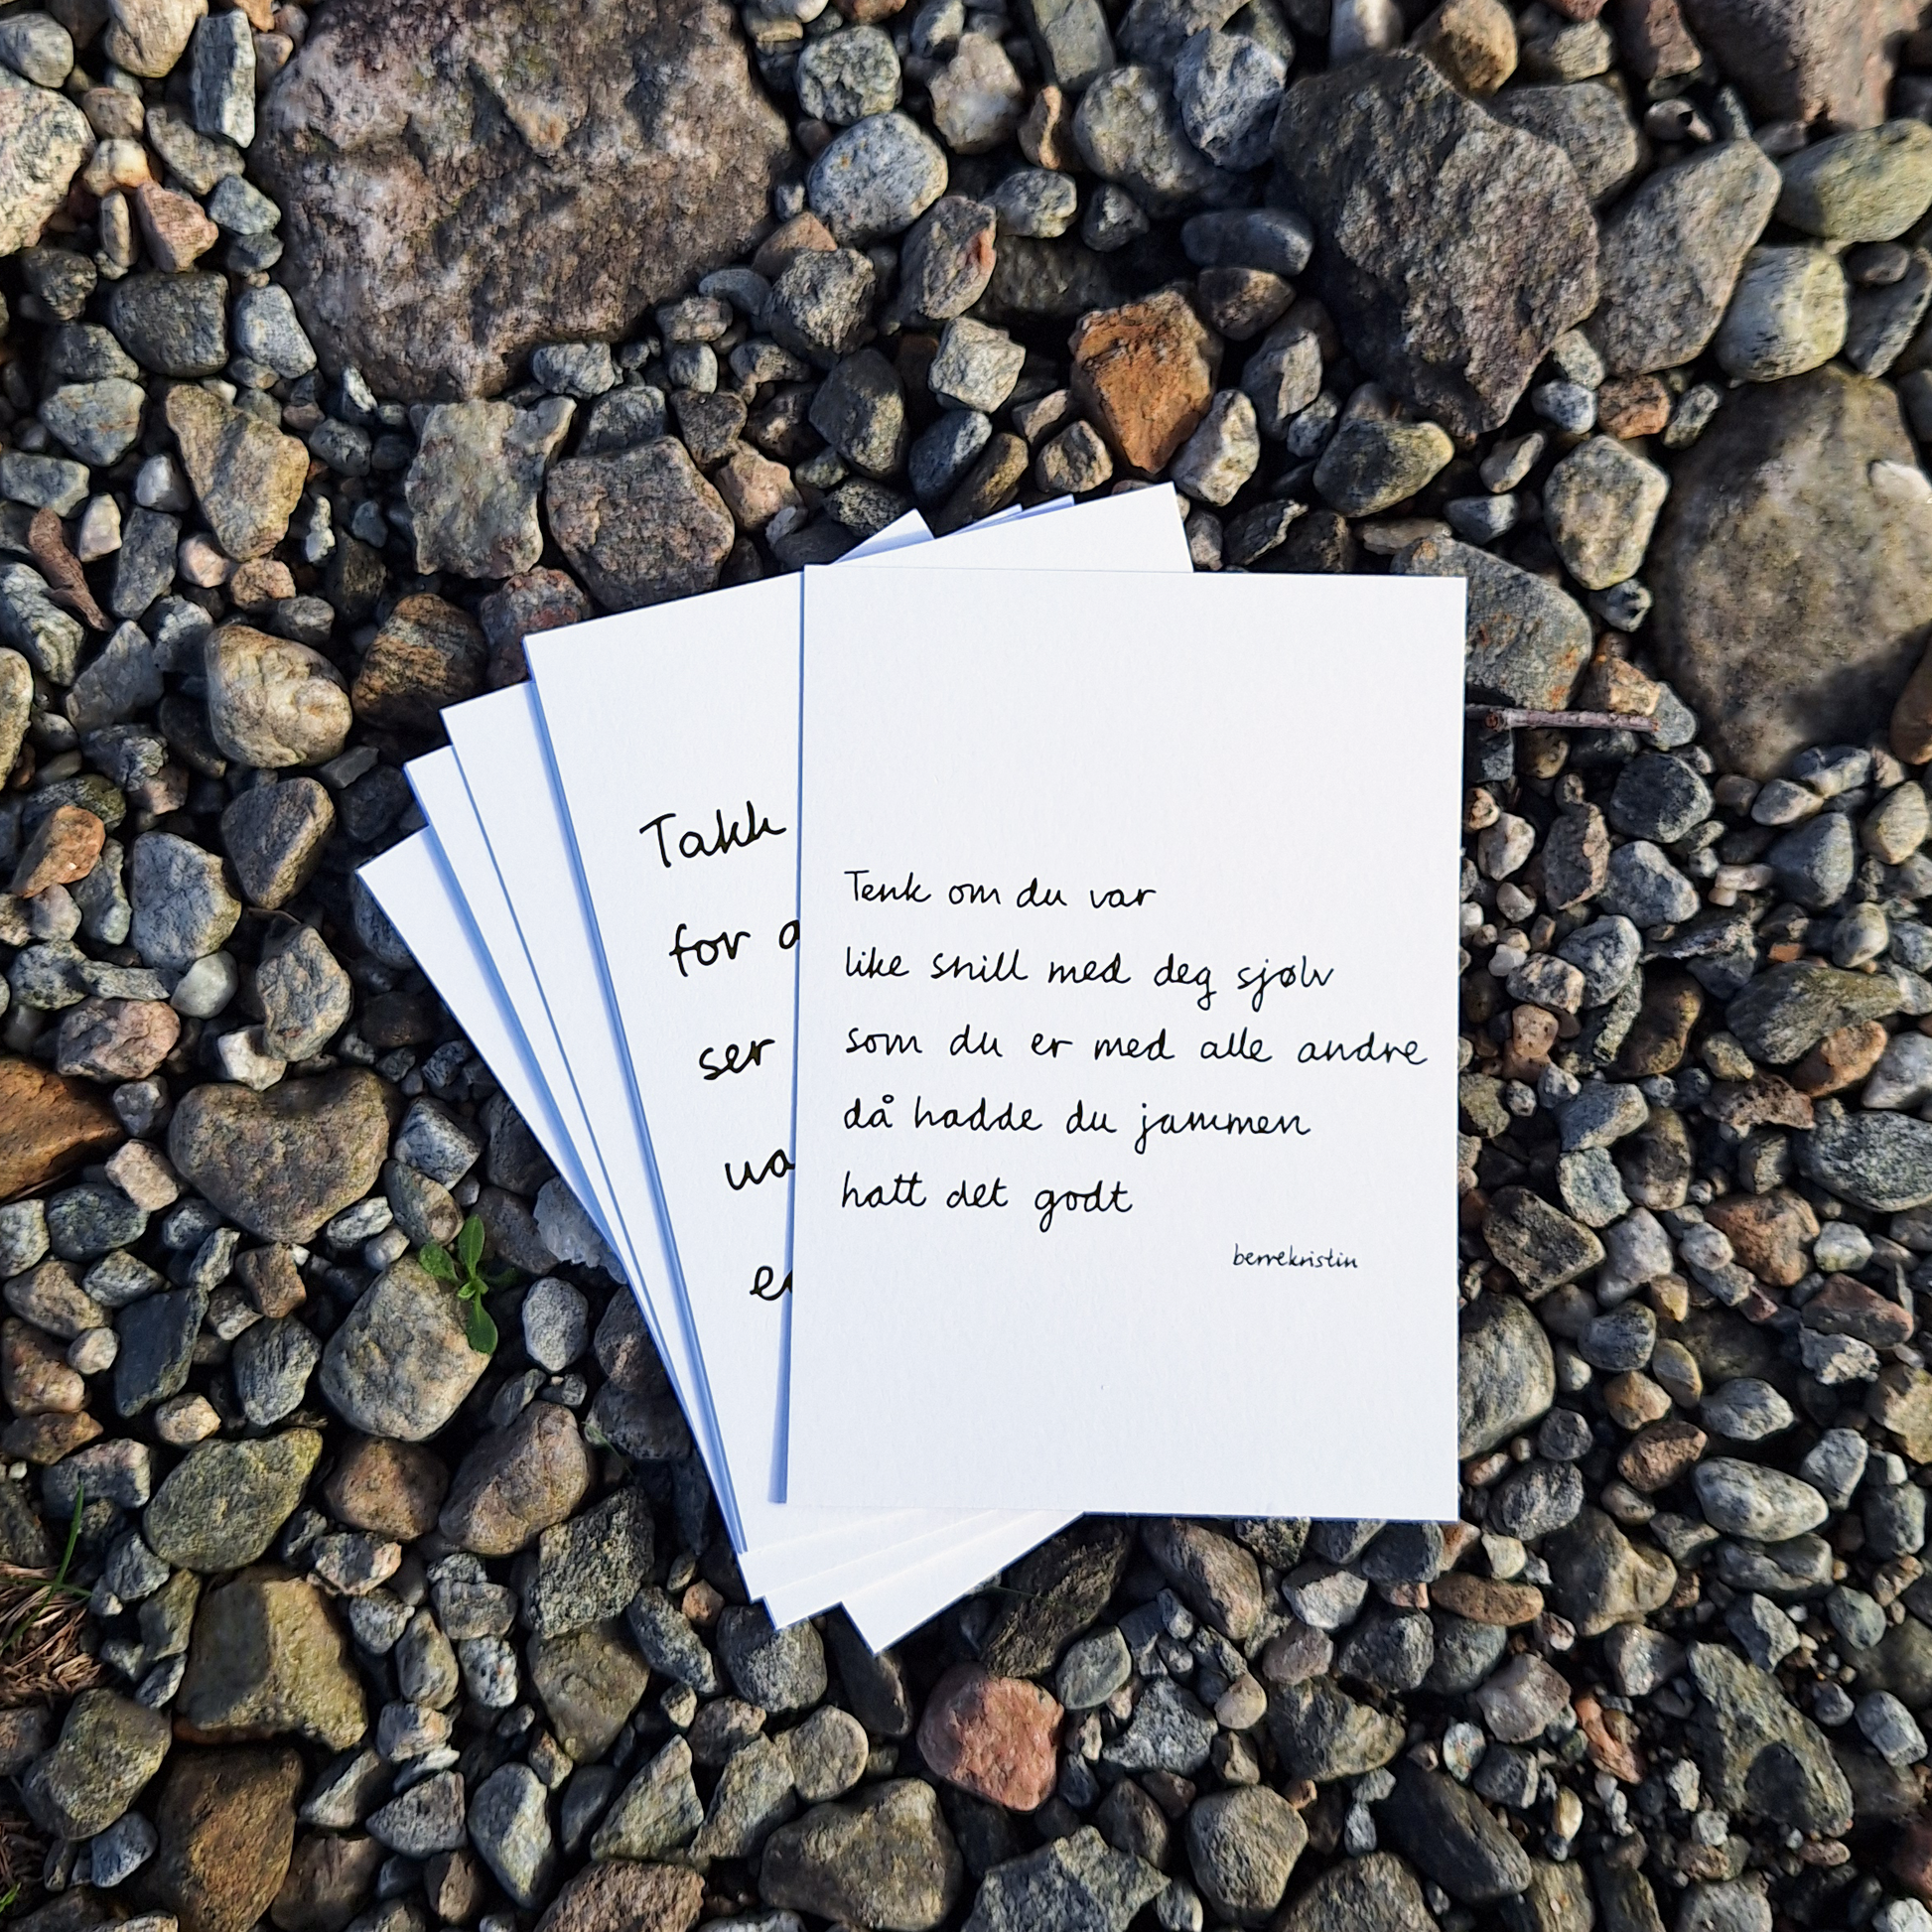 Takk
for
ser
Tenk om du var
like snill med deg sjølv
som du er med alle andre
då hadde du jammen
hatt det godt
berrekristin